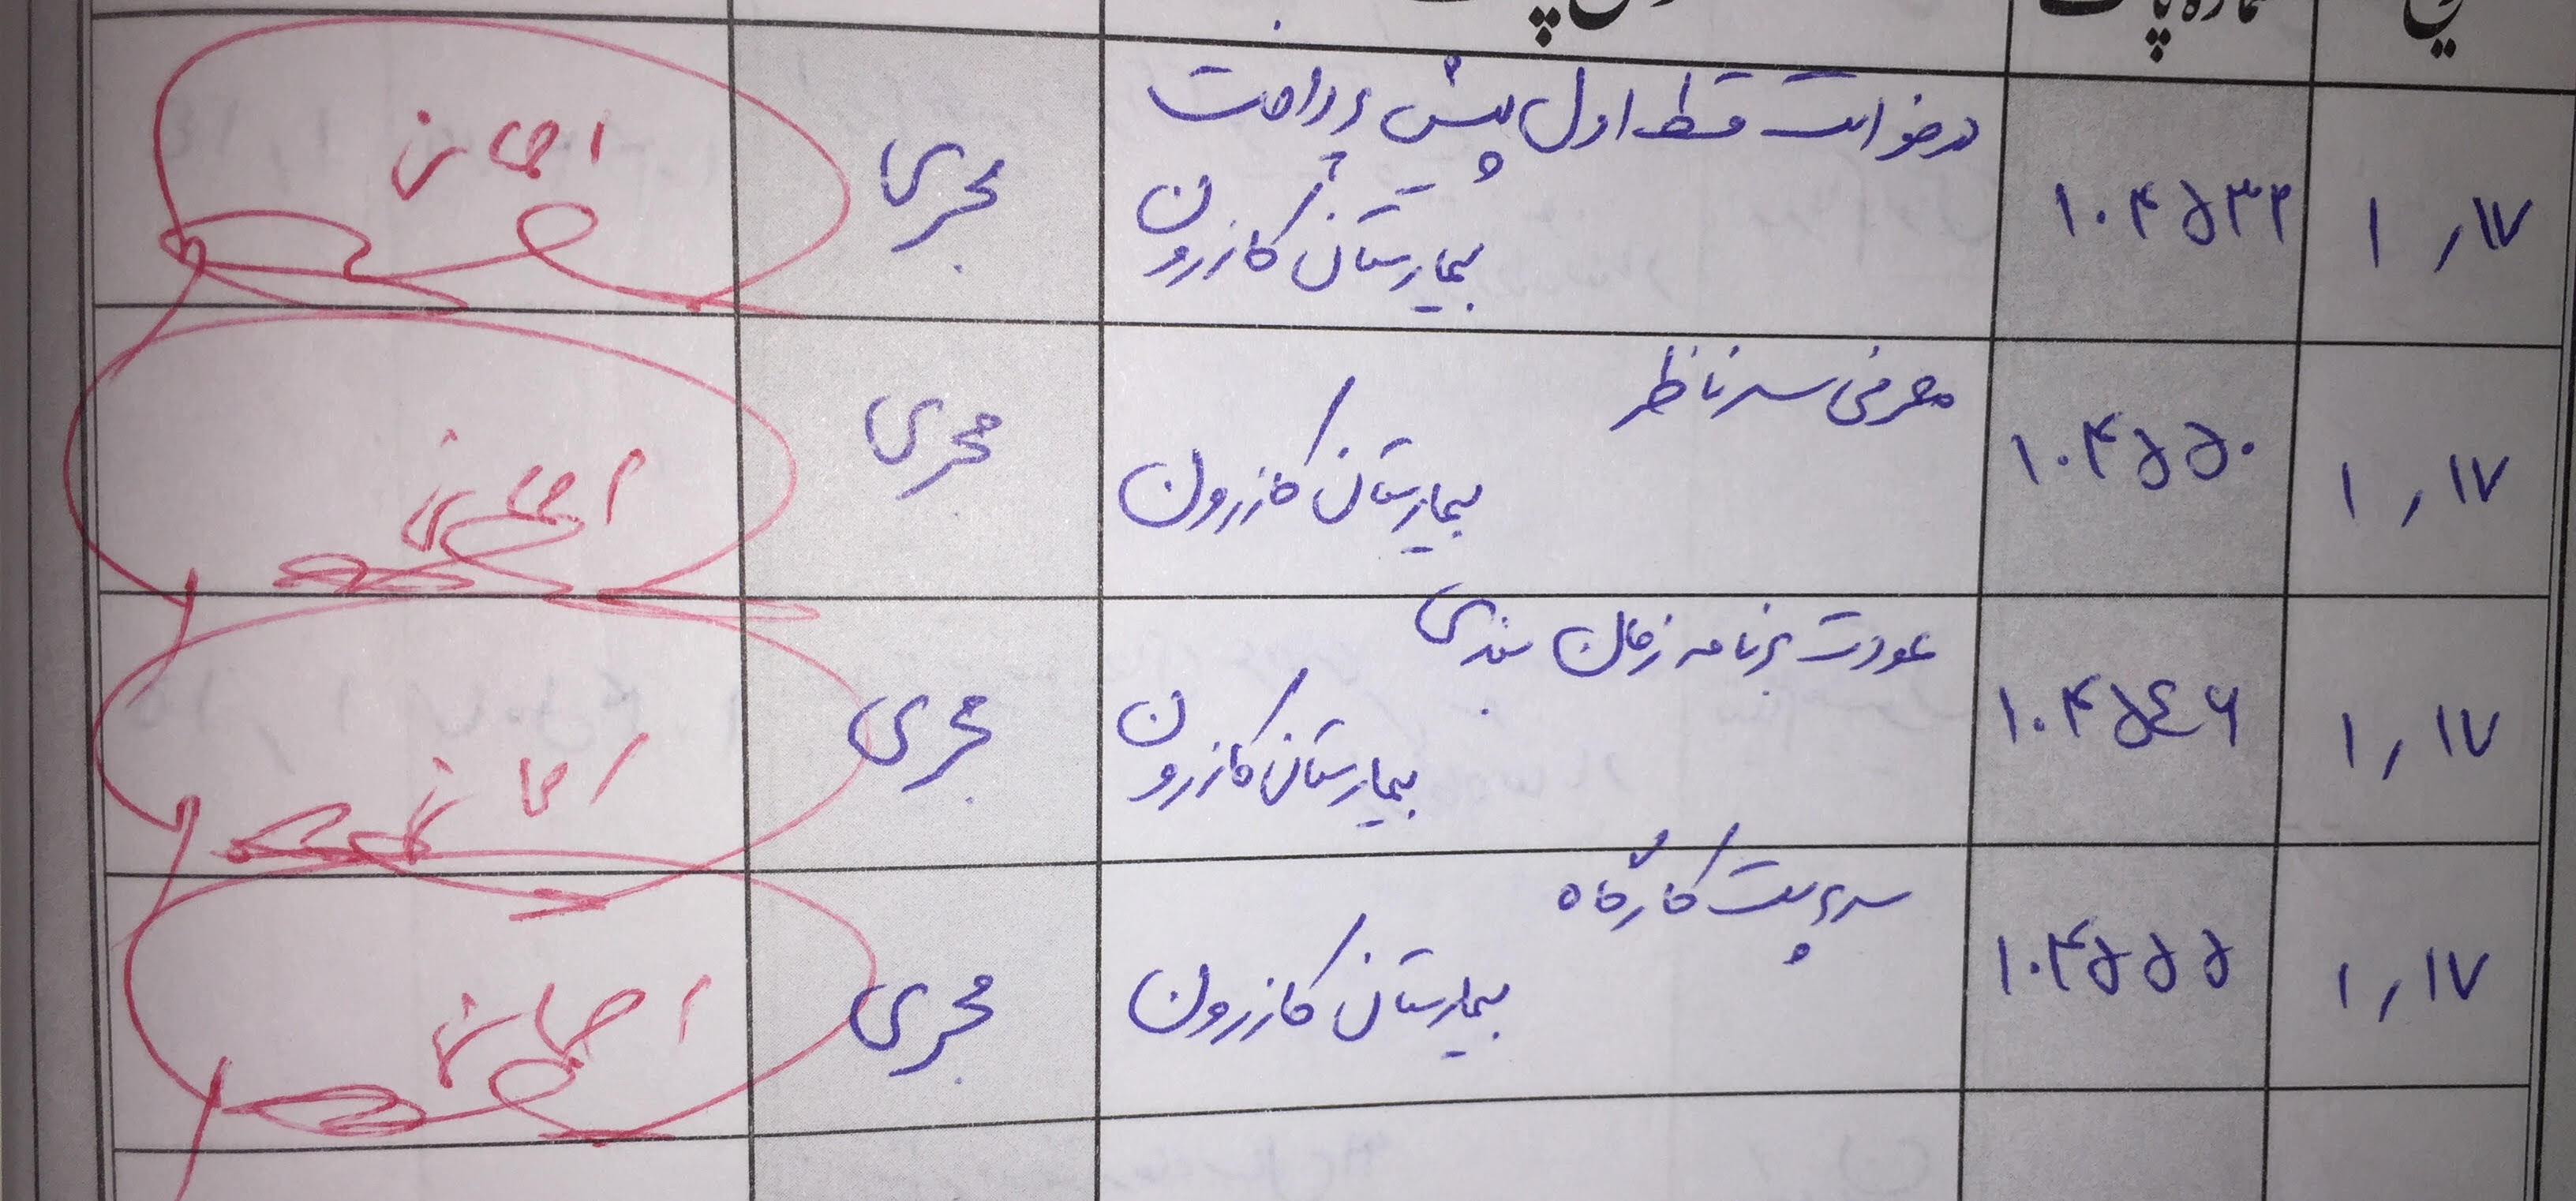 ۱,۱۷
۱۰۴۵۳۲
درخواست قسط اول پیش پرداخت
بیمارستان کازرون
مجری
۱,۱۷
۱۰۴۵۵۰
معرفی سرناظر
بیمارستان کازرون
مجری
۱,۱۷
۱۰۴۵۴۶
عودت برنامه زمان بندی
بیمارستان کازرون
مجری
۱,۱۷
۱۰۴۵۵۵
سرپرست کارگاه
بیمارستان کازرون
مجری